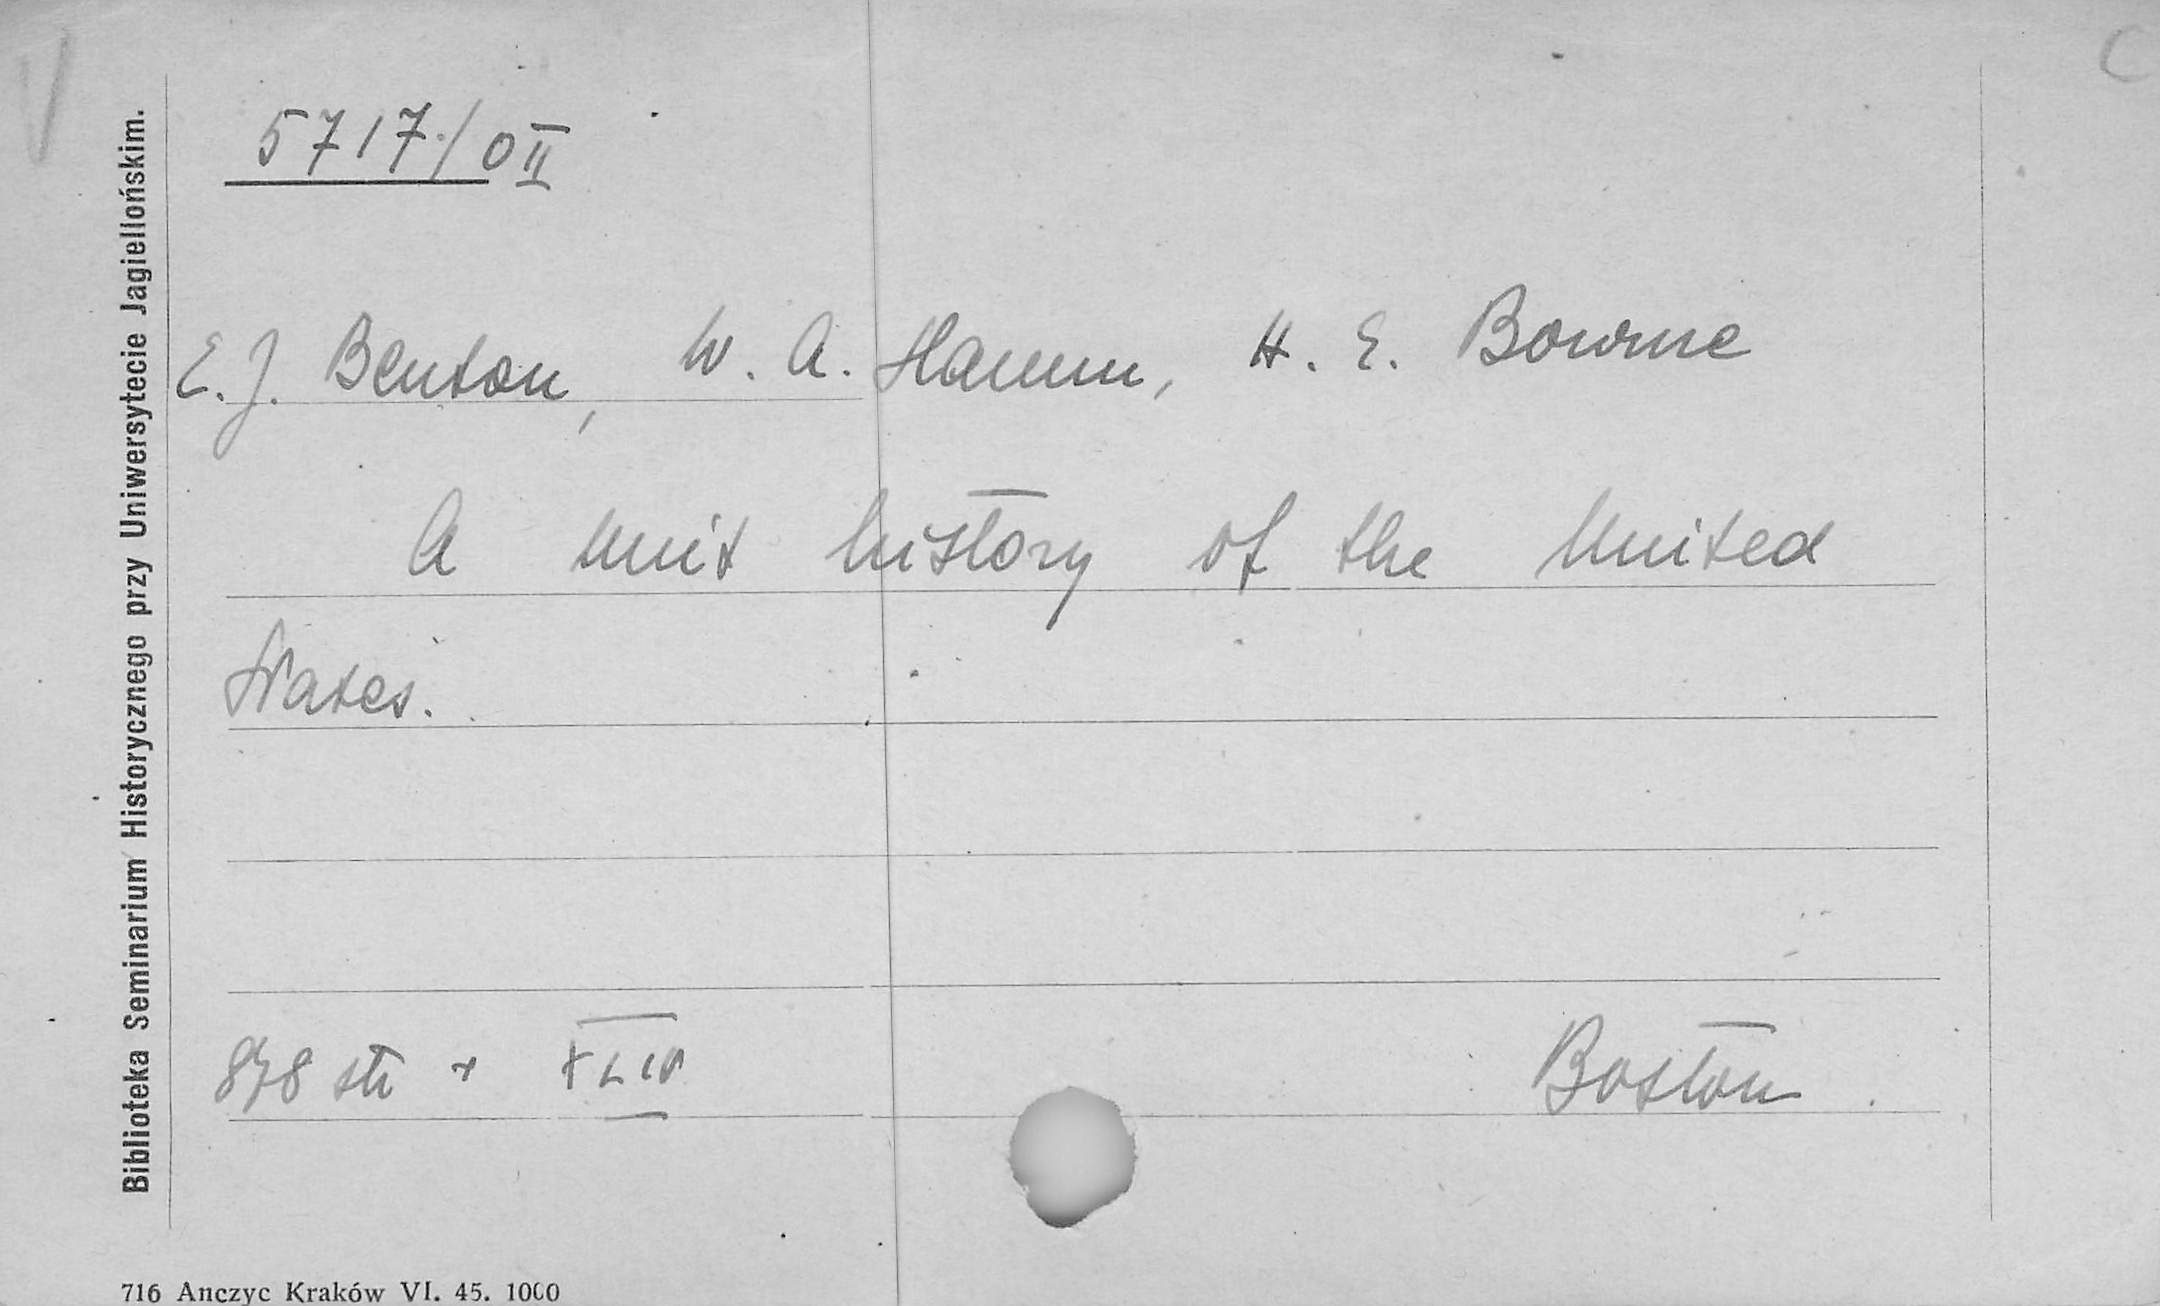 C
5717/OII
E. J. Benton, W. A. Hamm, H. E. Bourne
A unit history of the United
States.
878 str + XLIV
Boston
Biblioteka Seminarium Historycznego przy Uniwersytecie Jagiellońskim.
716 Anczyc Kraków VI. 45. 1000